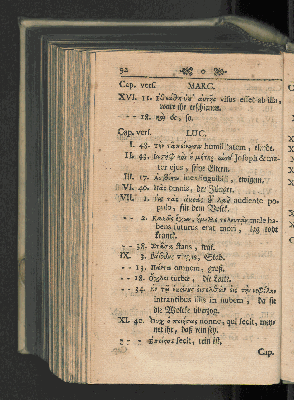 92
Cap. vers. MARC.
XVI. 11. ὑπ' αὐτῆς visus esset ab illa,
wäre ihr erschienen.
-- 18. so.
Cap. vers. LUC.
I. 48. τὴν ταπείνωσιν humilitatem, elende.
II. 43. Ἰωσὴφ καὶ ἡ μήτηρ αὐτοῦ Joseph & ma-
ter ejus, seine Eltern.
III. 17. ἀσβέστῳ inextinguibili, ewigem.
VI. 40. omnis, der Jünger.
VII. 1. εἰς τὰς ἀκοὰς τοῦ λαοῦ audiente po-
pulo, für dem Volck.
-- 2. Κακῶς ἔχων, ἤμελλε τελευτᾶν male ha-
bens futurus erat mori, lag todt
kranck.
-- 38. stans, trat.
IX. 3. Stab.
-- 13. Πάντα omnem, groß.
-- 18. Ὄχλοι turbæ, die Leute.
-- 34. εἰς τὴν νεφέλην
intrantibus illis in nubem, da sie
die Wolcke überzog.
XI. 40. Οὐχ ὁ ποιήσας nonne, qui fecit, mey-
net ihr, daß rein sey.
fecit, rein ist.
Cap.